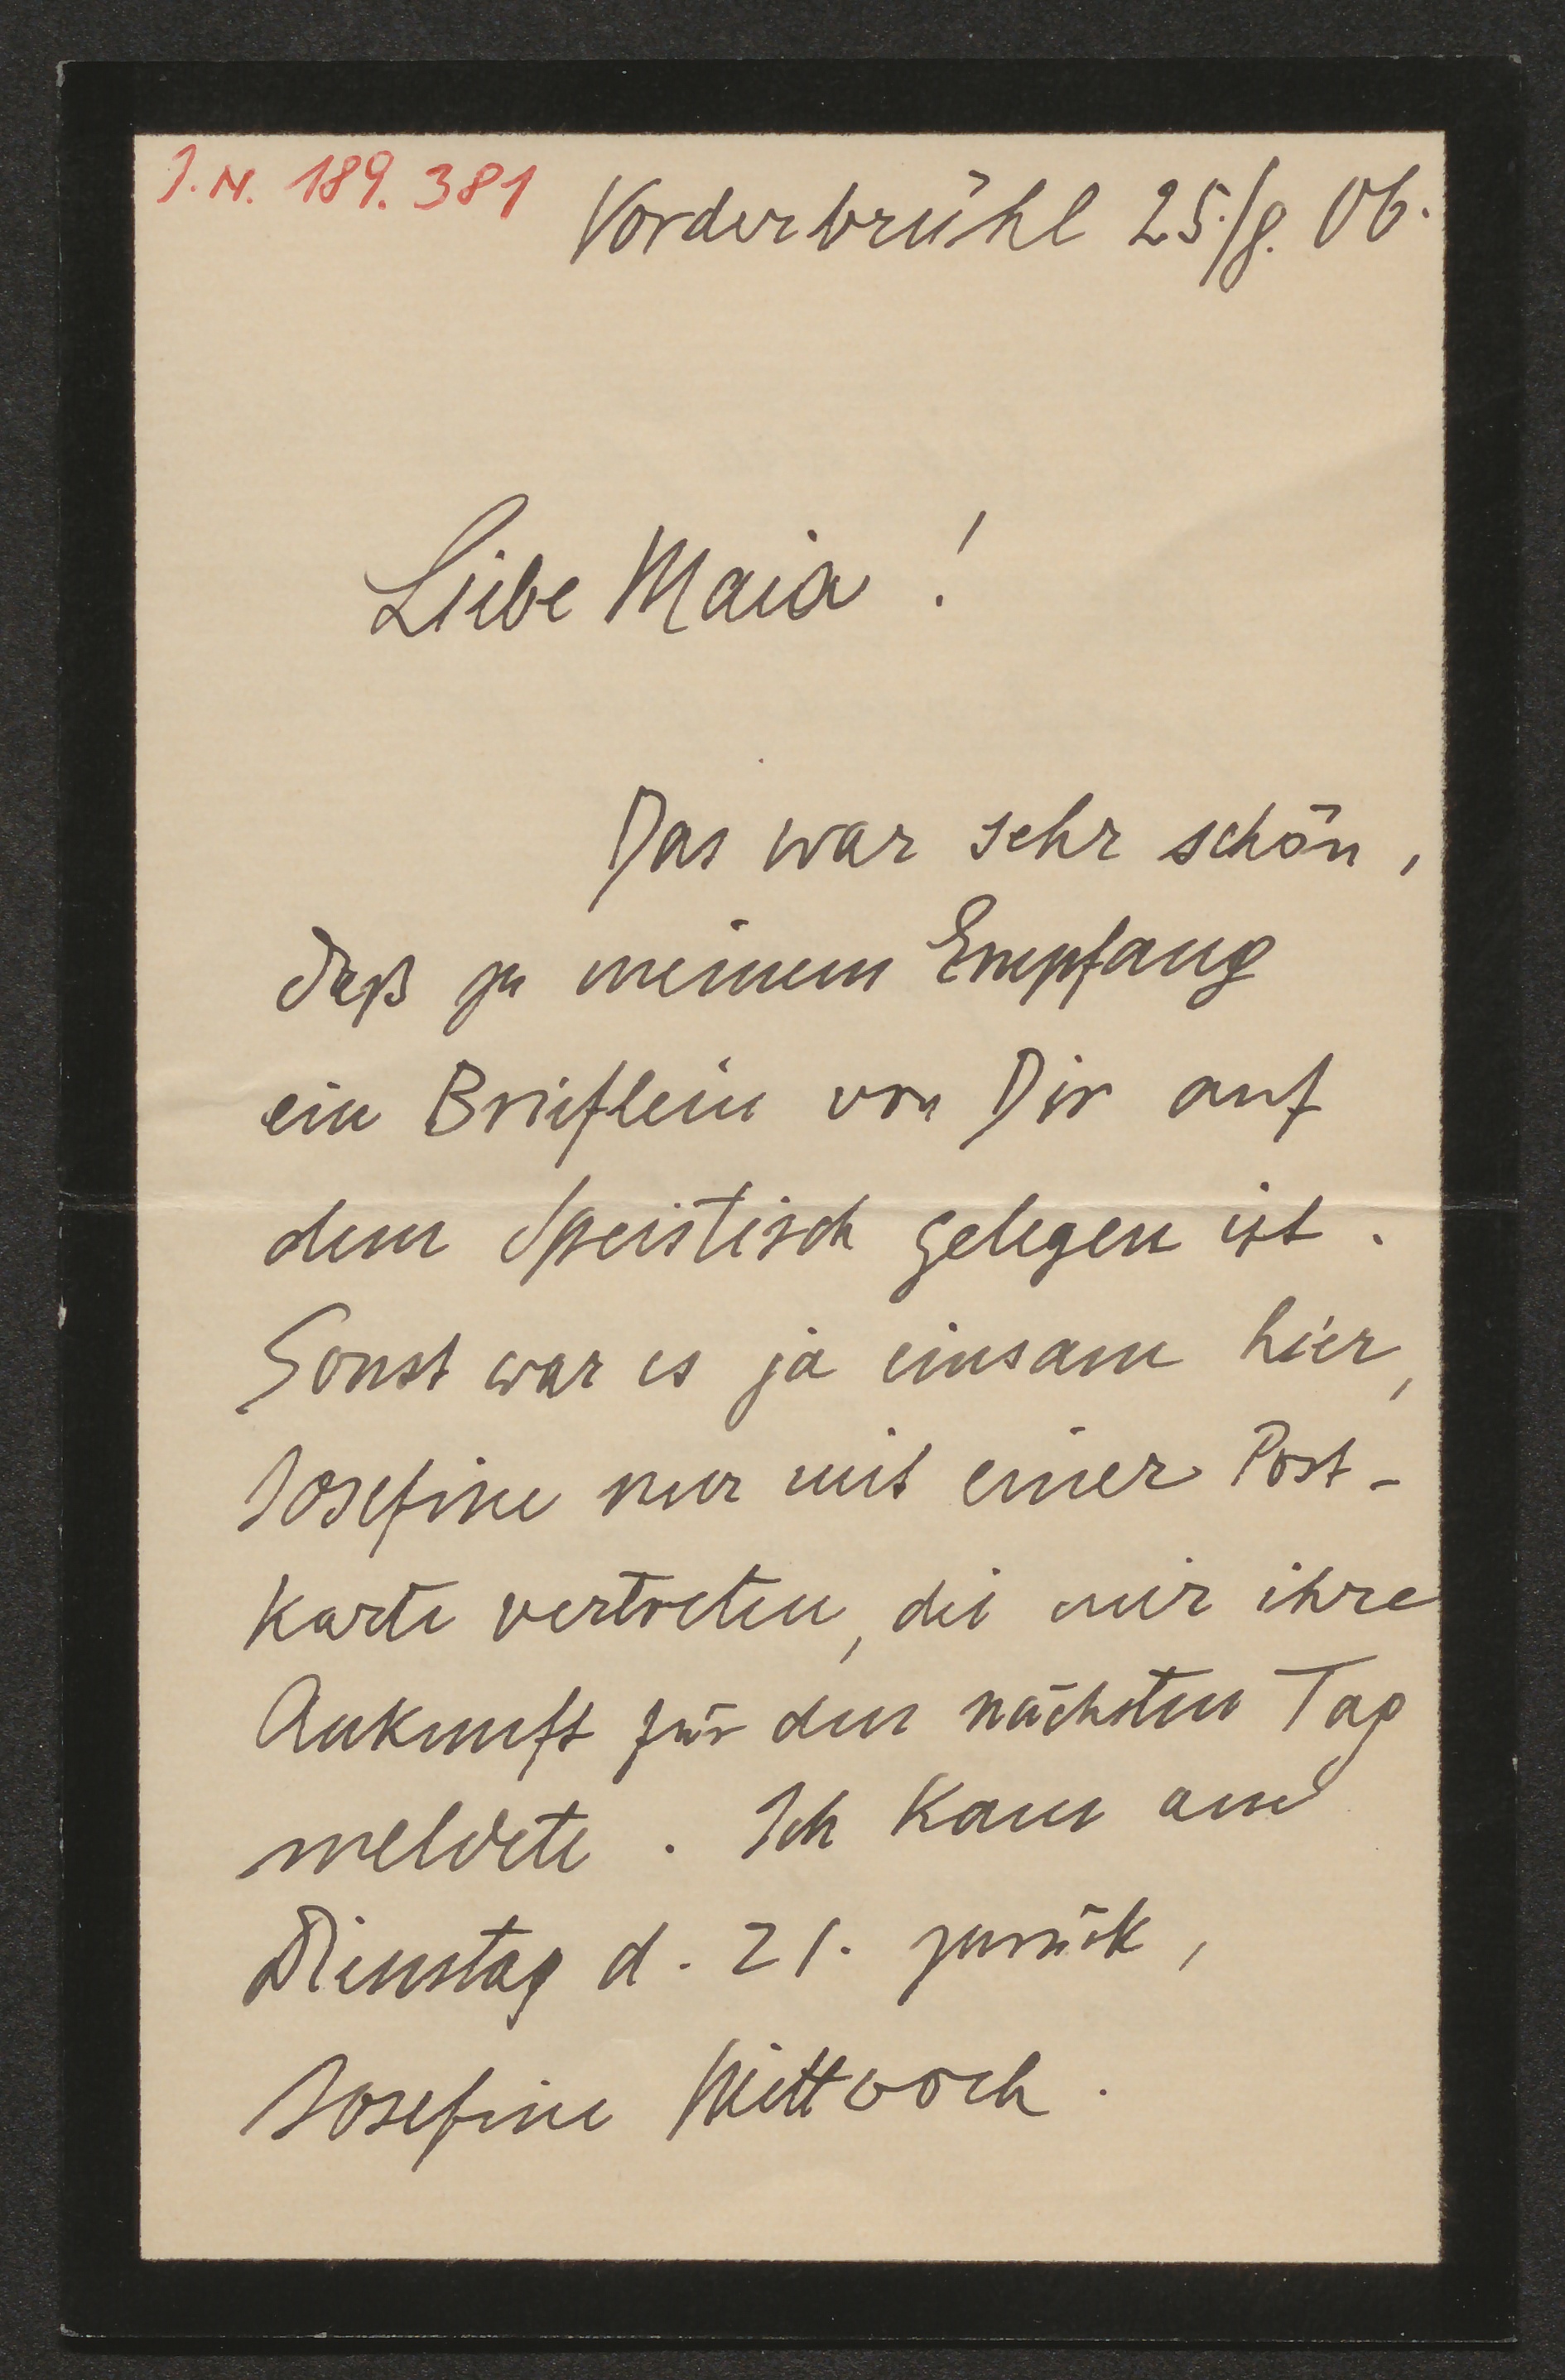 J.N. 189.381
Vorderbrühl 25./8. 06.
Liebe Maia !
Das war sehr schön,
daß zu meinem Empfang
ein Brieflein von Dir auf
dem Speistisch gelegen ist.
Sonst war es ja einsam hier,
Josefine nur mit einer Post-
karte vertreten, die mir ihre
Ankunft für den nächsten Tag
meldete. Ich kam am
Dienstag d. 21. zurück,
Josefine Mittwoch.